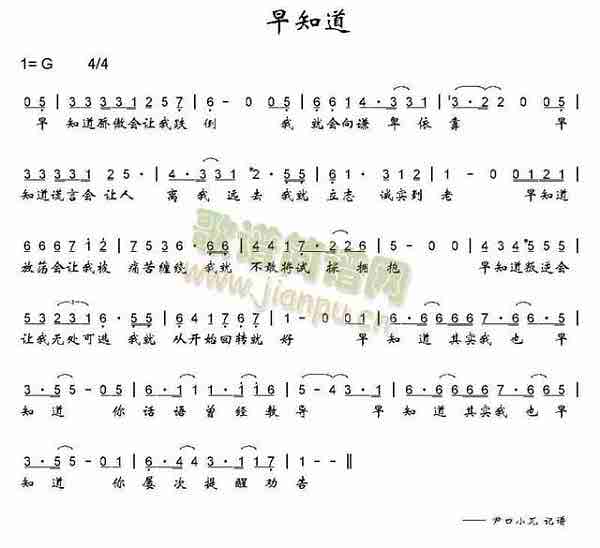 早知道
1= G 4/4
0 5 | 3 3 3 3 3 1 2 5 7 | 6 - 0 0 5 | 6 6 1 4 · 3 3 1 | 3 · 2 2 0 0 5 |
早 知道骄傲会让我跌 倒 我 就会向谦 卑依靠 早
3 3 3 3 3 1 2 5 · | 4 · 3 3 1 2 · 5 5 | 6 1 · 4 3 1 2 | 1 - 0 0 1 2 1 |
知道谎言会 让人 离 我 远 去 我就 立志 诚实到 老 早知道
6 6 6 6 7 1 2 | 7 5 3 · 6 6 | 4 4 1 7 · 2 2 6 | 5 - 0 0 | 4 3 4 5 5 5 5 |
放荡会让我被 痛苦缠绕 我就 不敢将试 探 拥抱 早知道叛逆会
5 3 2 3 1 6 · 5 5 | 6 1 1 5 3 2 2 | 1 - 0 0 1 | 6 · 6 6 6 6 6 7 · 6 6 5 |
让我无处可逃 我就 从开始回转就 好 早 知道 其实我 也早
3 · 5 5 - 0 1 | 6 · 1 1 4 · 1 1 | 3 · 2 1 3 · 1 | 6 · 6 6 6 6 6 7 · 6 6 5 |
知 道 你 话语 曾经 教 导 早 知道 其实我 也早
3 · 5 5 - 0 1 | 6 · 4 3 3 · 2 3 | 2 · 1 1 7 · 1 | 1 - - - ‖
知 道 你 屡 次 提醒 劝 告
—— 尹口小兀 记谱
歌谱简谱网
www.jianpu.cn